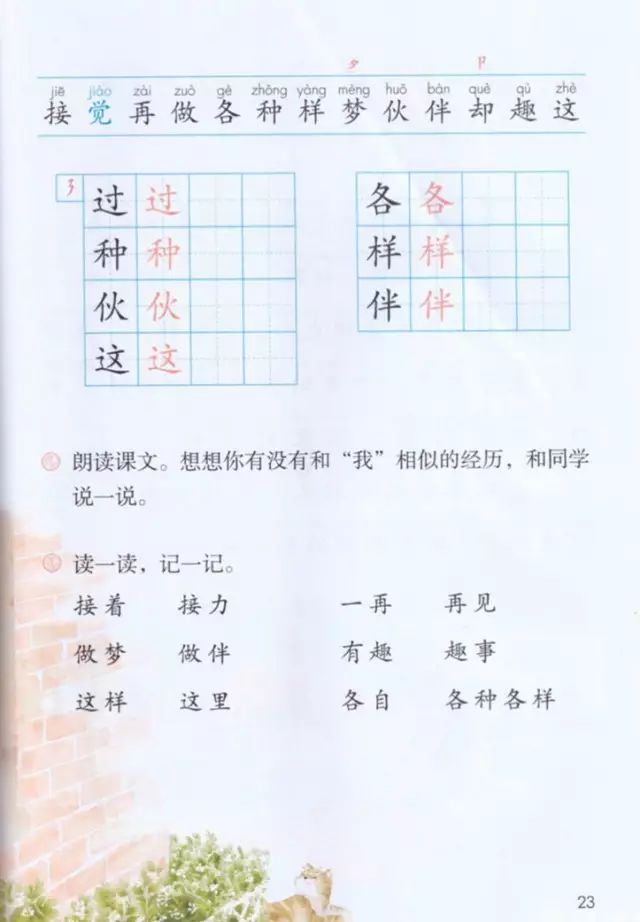 夕 卩
jiē jiào zài zuò gè zhǒng yàng mèng huǒ bàn què qù zhè
接 觉 再 做 各 种 样 梦 伙 伴 却 趣 这
㇋ 过 过 各 各
种 种 样 样
伙 伙 伴 伴
这 这
朗读课文。想想你有没有和“我”相似的经历，和同学
说一说。
读一读，记一记。
接着 接力 一再 再见
做梦 做伴 有趣 趣事
这样 这里 各自 各种各样
23